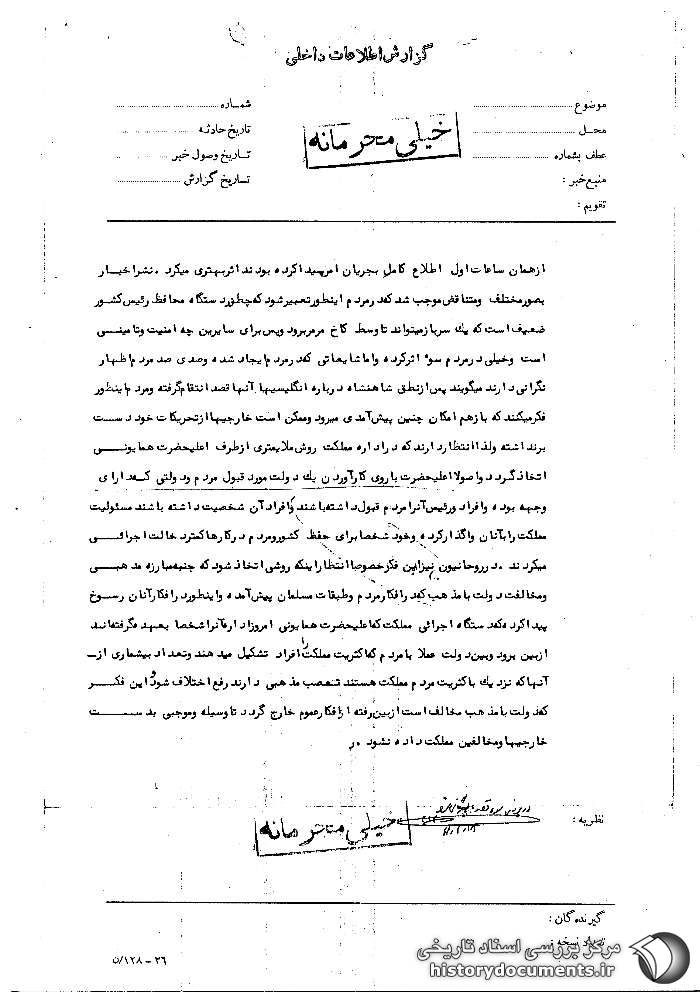 گزارش اطلاعات داخلی
موضوع
شماره
محل
تاریخ حادثه
عطف بشماره
تاریخ وصول خبر
منبع خبر :
تاریخ گزارش
تقویم :
خیلی محرمانه
از همان ساعات اول اطلاع کامل بجریان امر پیدا کرده بودند اثر بهتری میکرد . نشر اخبار
بصور مختلف ومتناقض موجب شد که در مردم اینطور تعبیر شود که چطور دستگاه محافظ رئیس کشور
ضعیف است که یک سرباز میتواند تا وسط کاخ مرمر برود و پس برای سایرین چه امنیت و تامینی
است وخیلی در مردم سوء اثر کرده و اما شایعاتی که در مردم ایجاد شده و صدی صد مردم اظهار
نگرانی دارند میگویند پس از نطق شاهنشاه درباره انگلیسیها آنها قصد انتقام گرفته ومردم اینطور
فکر میکنند که باز هم امکان چنین پیش آمدی میرود وممکن است خارجیها از تحریکات خود دست
برنداشته ولذا انتظار دارند که در اداره مملکت روش ملایمتری از طرف اعلیحضرت همایونی
اتخاذ گردد واصولا اعلیحضرت با روی کار آوردن یک دولت مورد قبول مردم ودولتی که دارای
وجهه بوده وافراد ورئیس آنرا مردم قبول داشته باشند وافراد آن شخصیت داشته باشند مسئولیت
مملکت را بآنان واگذار کرده وخود شخصا برای حفظ کشور ومردم در کارها کمتر دخالت اجرائی
میکردند . در روحانیون نیز این فکر خصوصا انتظار اینکه روشی اتخاذ شود که جنبه مبارزه مذهبی
ومخالفت دولت با مذهب که در افکار مردم وطبقات مسلمان پیش آمده واینطور در افکار آنان رسوخ
پیدا کرده که دستگاه اجرائی مملکت که اعلیحضرت همایونی امروز اداره آنرا شخصا بعهده گرفته‌اند
از بین برود وبین دولت عملا با مردم که اکثریت مملکت را افراد تشکیل میدهند وتعداد بیشماری از ـ
آنها که نزدیک باکثریت مردم مملکت هستند تعصب مذهبی دارند رفع اختلاف شود و این فکر
که دولت با مذهب مخالف است از بین رفته از افکار عموم خارج گردد تا وسیله وموجبی بدست
خارجیها ومخالفین مملکت داده نشود . ر
نظریه :
خیلی محرمانه
گیرندگان :
تعداد نسخه :
۳۶ - ۱۲۸/ن
مرکز بررسی اسناد تاریخی
historydocuments.ir